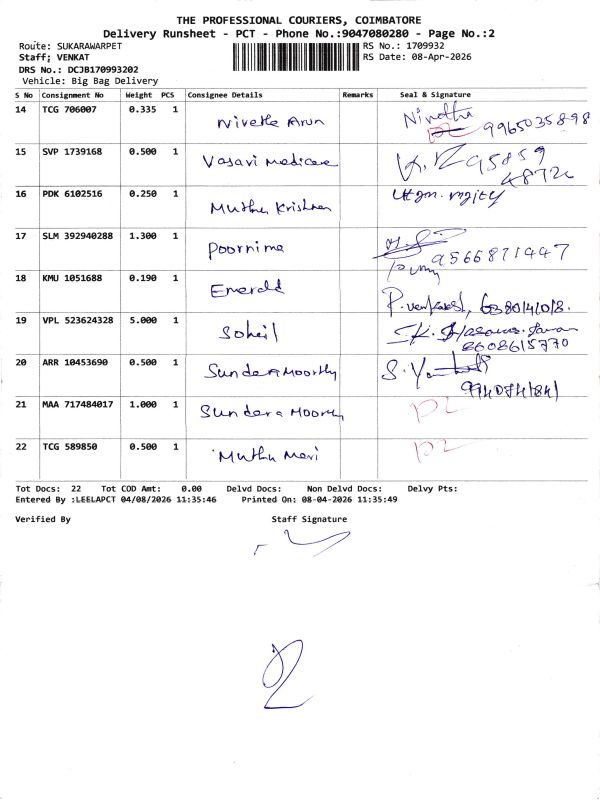 THE PROFESSIONAL COURIERS, COIMBATORE
Delivery Runsheet - PCT - Phone No.:9047080280 - Page No.:2
Route: SUKARAWARPET
RS No.: 1709932
Staff; VENKAT
RS Date: 08-Apr-2026
DRS No.: DCJB170993202
Vehicle: Big Bag Delivery
S No Consignment No Weight PCS Consignee Details Remarks Seal & Signature
14 TCG 706007 0.335 1 Nivetha Arun Nivetha
9965035898
15 SVP 1739168 0.500 1 Vasavi Medicare 95859
48724
16 PDK 6102516 0.250 1 Muthu Krishnan
17 SLM 392940288 1.300 1 Poornima 9566871447
18 KMU 1051688 0.190 1 Emerald P. venkatesh,
19 VPL 523624328 5.000 1 Soheil
8608615770
20 ARR 10453690 0.500 1 Sundera Moorthy S.
21 MAA 717484017 1.000 1 Sundera Moorthy
22 TCG 589850 0.500 1 Muthu Mari
Tot Docs: 22 Tot COD Amt: 0.00 Delvd Docs: Non Delvd Docs: Delvy Pts:
Entered By :LEELAPCT 04/08/2026 11:35:46 Printed On: 08-04-2026 11:35:49
Verified By Staff Signature